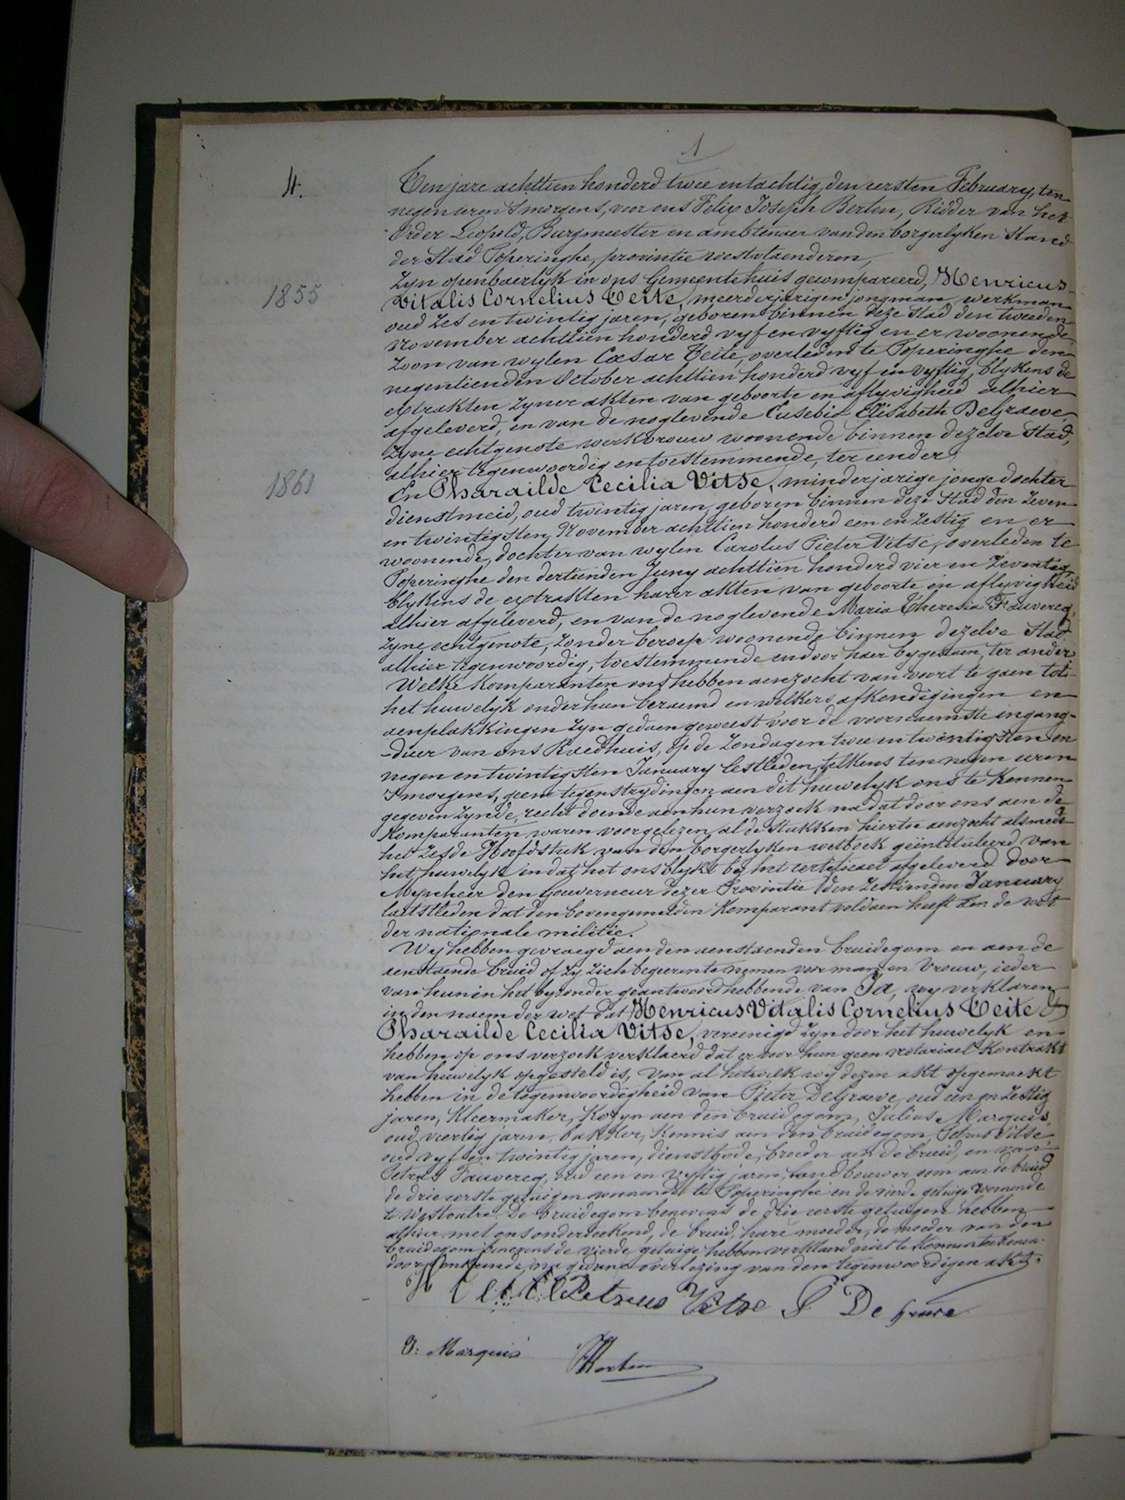 1
4.
Ten jare achttien honderd twee en tachtig, den eersten February, ten
negen uren 's morgens, voor ons Felix Joseph Berten, Ridder van het
Order Leopold, Burgmeester en ambtenaer van den borgerlyken stand
der Stad Poperinghe, provintie westvlaenderen,
Zyn openbaerlyk in ons Gemeentehuis gecompareerd, Henricus
1855
Vitalis Cornelius Teite, meerderjarigen jongman, werkman
oud zes en twintig jaren, geboren binnen deze stad den tweeden
November achttien honderd vyf en vyftig en er woonende,
Zoon van wylen Cæsar Teite, overleden te Poperinghe den
negentienden October achttien honderd vyf en vyftig, blykens de
extrakten zyner akten van geboorte en aflyvigheid alhier
afgeleverd, en van de noglevende Eusebie Elisabeth DeGraeve,
zyne echtgenote werkvrouw woonende binnen dezelve Stad,
alhier tegenwoordig en toestemmende, ter eender,
1861
En Pharailde Cecilia Vitse, minderjarige jonge dochter
dienstmeid, oud twintig jaren, geboren binnen deze Stad den zeven
en twintigsten November achttien honderd een en zestig en er
woonende, dochter van wylen Carolus Pieter Vitse, overleden te
Poperinghe den dertienden Juny achttien honderd vier en zeventig,
blykens de extrakten harer akten van geboorte en aflyvigheid
alhier afgeleverd, en van de noglevende Maria Theresia Fauvercq,
zyne echtgenote, zonder beroep woonende binnen dezelve Stad
alhier tegenwoordig, toestemmende en door haer bygestaen, ter ander
Welke komparanten ons hebben aenzocht van voort te gaen tot
het huwelyk onder hun beraemd en welkers afkondigingen en
aenplakkingen zyn gedaen geweest voor de voornaemste ingang-
-duer van ons Raedhuis, op de Zondagen twee en twintigsten en
negen en twintigsten January lestleden, telkens ten negen uren
's morgens, geene tegenstrydingen aen dit huwelyk ons te kennen
gegeven zynde, recht doende aen hun verzoek na dat door ons aen de
komparanten waren voorgelezen al de stukken hiertoe aenzocht alsmede
het zesde Hoofdstuk van den borgerlyken wetboek geïntituleerd van
het huwelyk en dat het ons blykt by het certificaet afgeleverd door
Mynheer den Gouverneur dezer Provintie den January
laetstleden dat den bovengemelden komparant voldaen heeft aen de wet
der nationale militie.
Wy hebben gevraegd aen den aenstaenden bruidegom en aen de
aenstaende bruid of zy zich begeeren te nemen voor man en vrouw, ieder
van hun in het byzonder geantwoord hebbende van Ja, wy verklaren
in den naem der wet dat Henricus Vitalis Cornelius Teite &
Pharailde Cecilia Vitse, vereenigd zyn door het huwelyk en
hebben op ons verzoek verklaerd dat er voor hun geen notariael kontrakt
van huwelyk opgesteld is, van al hetwelk wy dezen akt opgemaekt
hebben in de tegenwoordigheid van Pieter DeGraeve, oud een en zestig
jaren, kleermaker, kozyn aen den bruidegom, Julius Marquis,
oud veertig jaren, bakker, kennis aen den bruidegom, Petrus Vitse
oud vyf en twintig jaren, dienstbode, broeder aen de bruid, en van
Petrus Fauvercq, oud een en vyftig jaren, landbouwer oom aen de bruid
de drie eerste getuigen woonende te Poperinghe en de vierde getuige woonende
te Westoutre. De bruidegom benevens de drie eerste getuigen hebben
alhier met ons onderteekend, de bruid, hare moeder, de moeder van den
bruidegom benevens de vierde getuige hebben verklaerd niet te konnen teekenen
door onkunde, na gedane overlezing van den tegenwoordigen akt.
Petrus Vitse P De Graeve
J: Marquis Berten